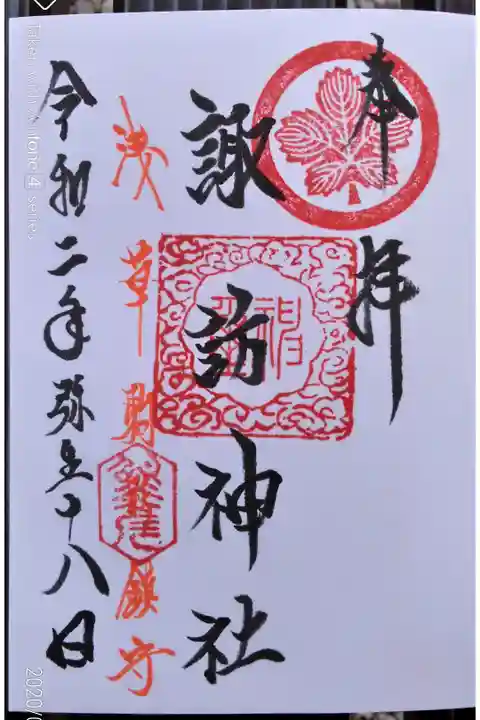 奉拝
諏訪神社
浅草
鎮守
令和二年弥生十八日
series
2020/0